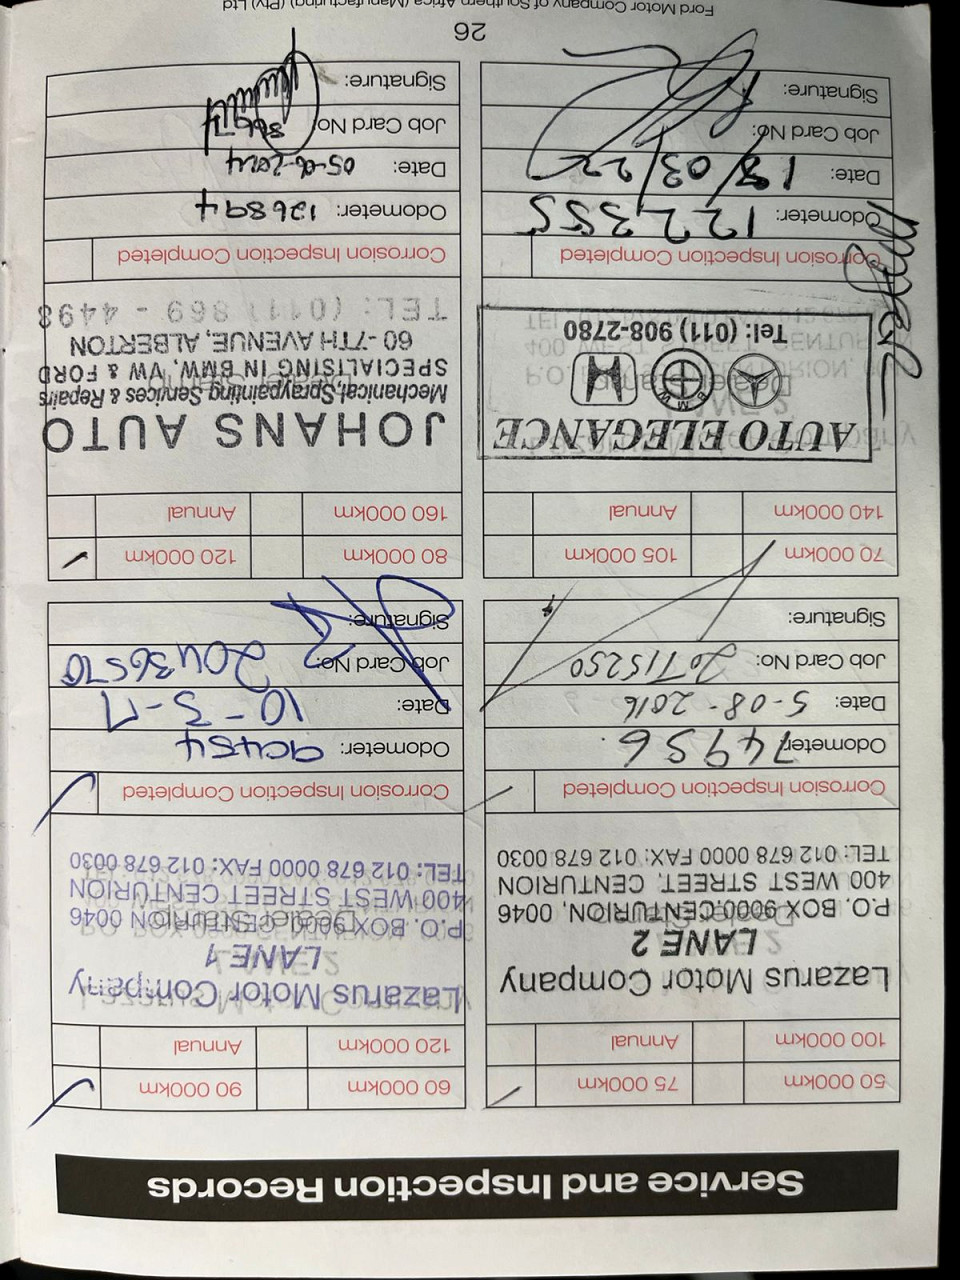 Service and Inspection Records
50 000km
75 000km
100 000km
Annual
Lazarus Motor Company
LANE 2
P.O. BOX 9000.CENTURION, 0046
400 WEST STREET, CENTURION
TEL: 012 678 0000 FAX: 012 678 0030
Corrosion Inspection Completed
Odometer: 74956
Date: 5-08-2016
Job Card No: 20715250
Signature:
60 000km
90 000km
120 000km
Annual
Lazarus Motor Company
LANE 1
P.O. BOX 9000, CENTURION 0046
400 WEST STREET CENTURION
TEL: 012 678 0000 FAX: 012 678 0030
Corrosion Inspection Completed
Odometer: 90454
Date: 10-3-17
Job Card No:
Signature:
70 000km
105 000km
140 000km
Annual
AUTO ELEGANCE
BMW
Tel: (011) 908-2780
Corrosion Inspection Completed
Odometer: 122355
Date: 18/03/22
Job Card No:
Signature:
80 000km
120 000km
160 000km
Annual
JOHANS AUTO
Mechanical, Spraypainting Services & Repairs
SPECIALISING IN BMW, VW & FORD
60 -7TH AVENUE, ALBERTON
TEL: (011) 869 - 4498
Corrosion Inspection Completed
Odometer: 126894
Date: 05-06-2024
Job Card No:
Signature:
26
Ford Motor Company of Southern Africa (Manufacturing) (Pty) Ltd